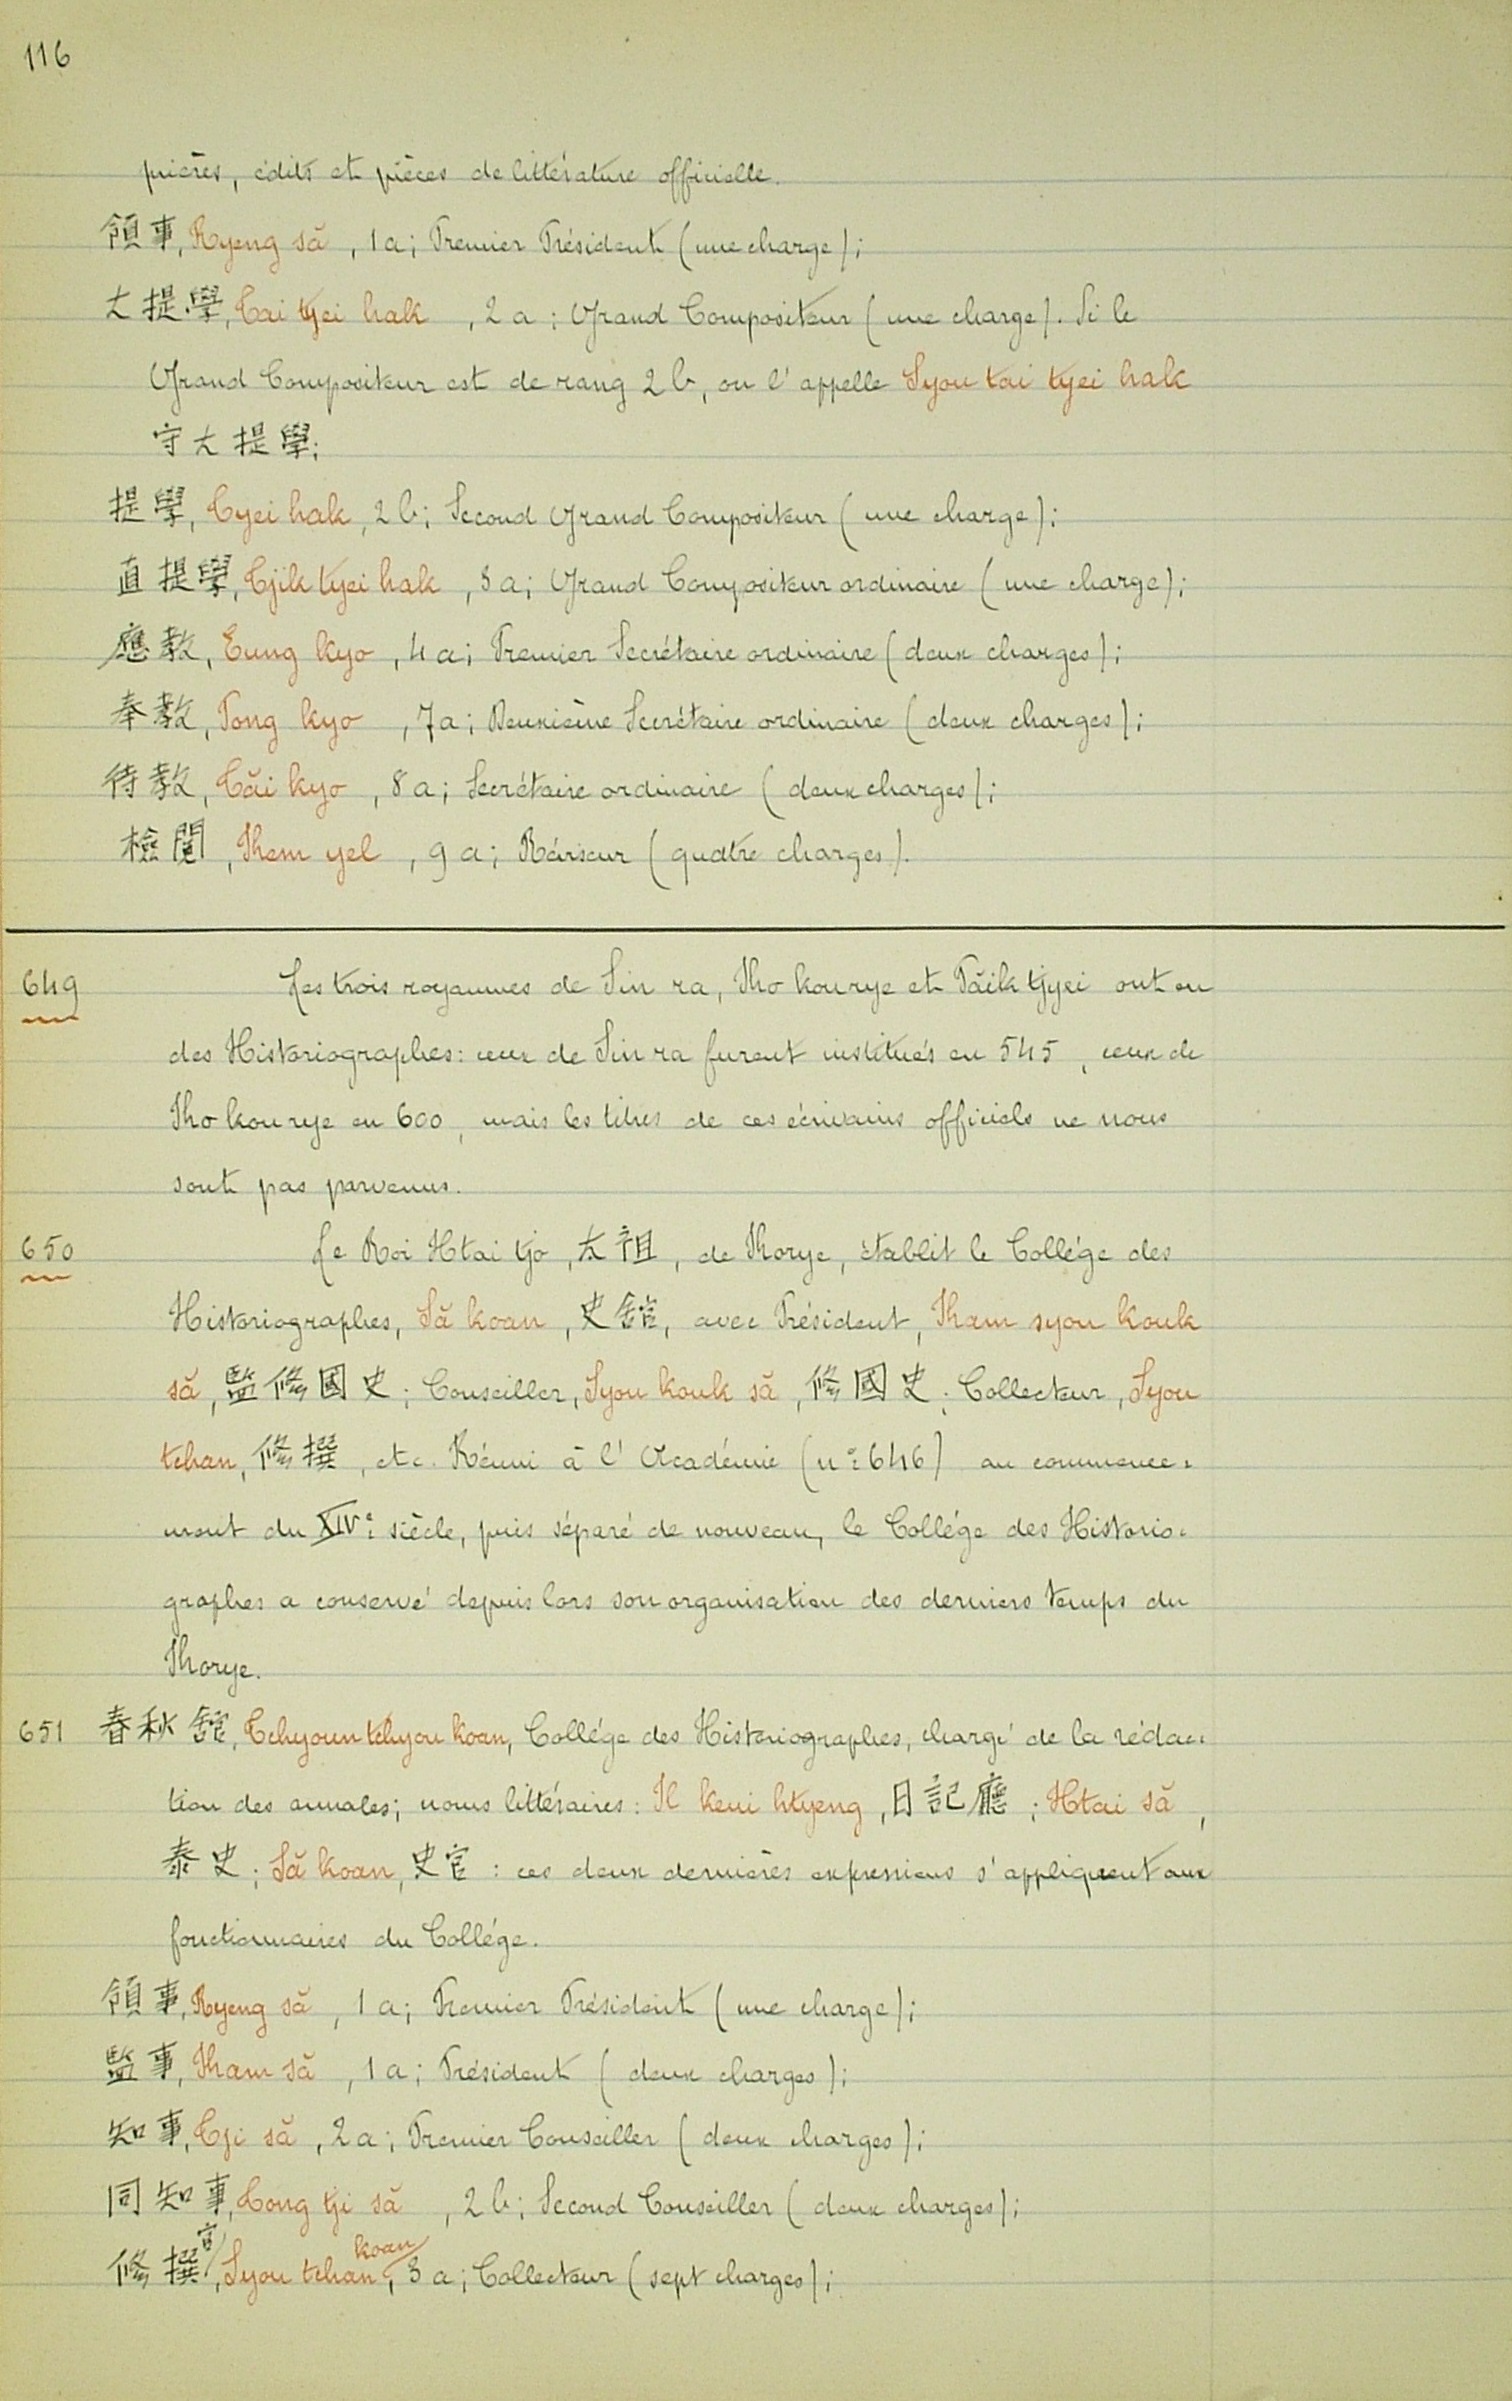 116
prières, édits et pièces de littérature officielle.
領事, Ryeng să, 1a; Premier Président (une charge);
大提學, Tai tjei hak, 2a; Grand Compositeur (une charge). Si le
Grand Compositeur est de rang 2b, on l'appelle Syou tai tjei hak
守大提學;
提學, Tyei hak, 2b; Second Grand Compositeur (une charge);
直提學, Tjik tyei hak, 3a; Grand Compositeur ordinaire (une charge);
應敎, Eung kyo, 4a; Premier Secrétaire ordinaire (deux charges);
奉敎, Pong kyo, 7a; Deuxième Secrétaire ordinaire (deux charges);
待敎, Tăi kyo, 8a; Secrétaire ordinaire (deux charges);
檢閱, Kem yel, 9a; Réviseur (quatre charges).
649 Les trois royaumes de Sin ra, Ko kou rye et Păik tjyei ont eu
des Historiographes: ceux de Sin ra furent institués en 545, ceux de
Ko kou rye en 600, mais les titres de ces écrivains officiels ne nous
sont pas parvenus.
650 Le Roi Htai tjo, 太祖, de Korye, établit le Collége des
Historiographes, Să koan, 史舘, avec Président, Kam syou kouk
să, 監修國史; Conseiller, Syou kouk să, 修國史; Collecteur, Syou
tchan, 修撰, etc. Réuni à l'Académie (nº 646) au commence=
ment du XIVe siècle, puis séparé de nouveau, le Collége des Historio=
graphes a conservé depuis lors son organisation des derniers temps du
Korye.
651 春秋舘, Tchyoun tchyou koan, Collége des Historiographes, chargé de la rédac=
tion des annales; noms littéraires: Il keui htyeng, 日記廳; Htai să,
泰史; Să koan, 史官: ces deux dernières expressions s'appliquent aux
fonctionnaires du Collége.
領事, Ryeng să, 1a; Premier Président (une charge);
監事, Kam să, 1a; Président (deux charges);
知事, Tji să, 2a; Premier Conseiller (deux charges);
同知事, Tong tji să, 2b; Second Conseiller (deux charges);
修撰官, Syou tchan koan, 3a; Collecteur (sept charges);